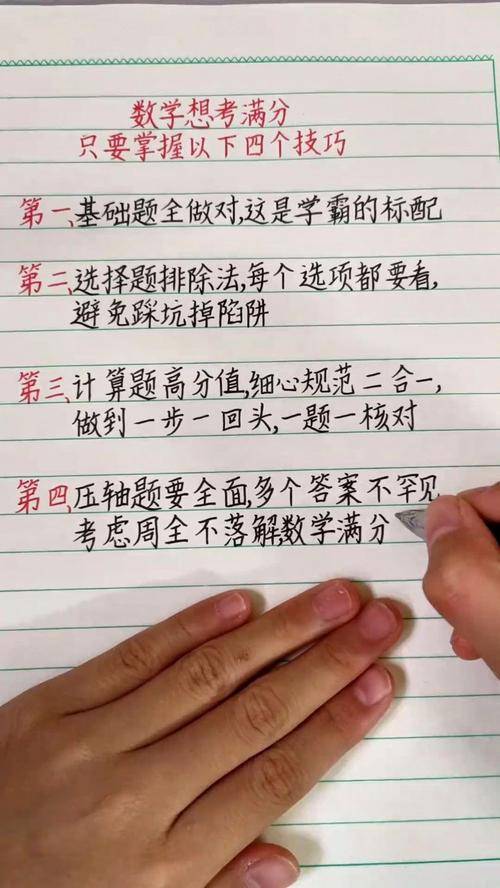 数学想考满分
只要掌握以下四个技巧
第一、基础题全做对,这是学霸的标配
第二、选择题排除法,每个选项都要看,
避免踩坑掉陷阱
第三、计算题高分值,细心规范二合一,
做到一步一回头,一题一核对
第四、压轴题要全面,多个答案不罕见
考虑周全不落解,数学满分